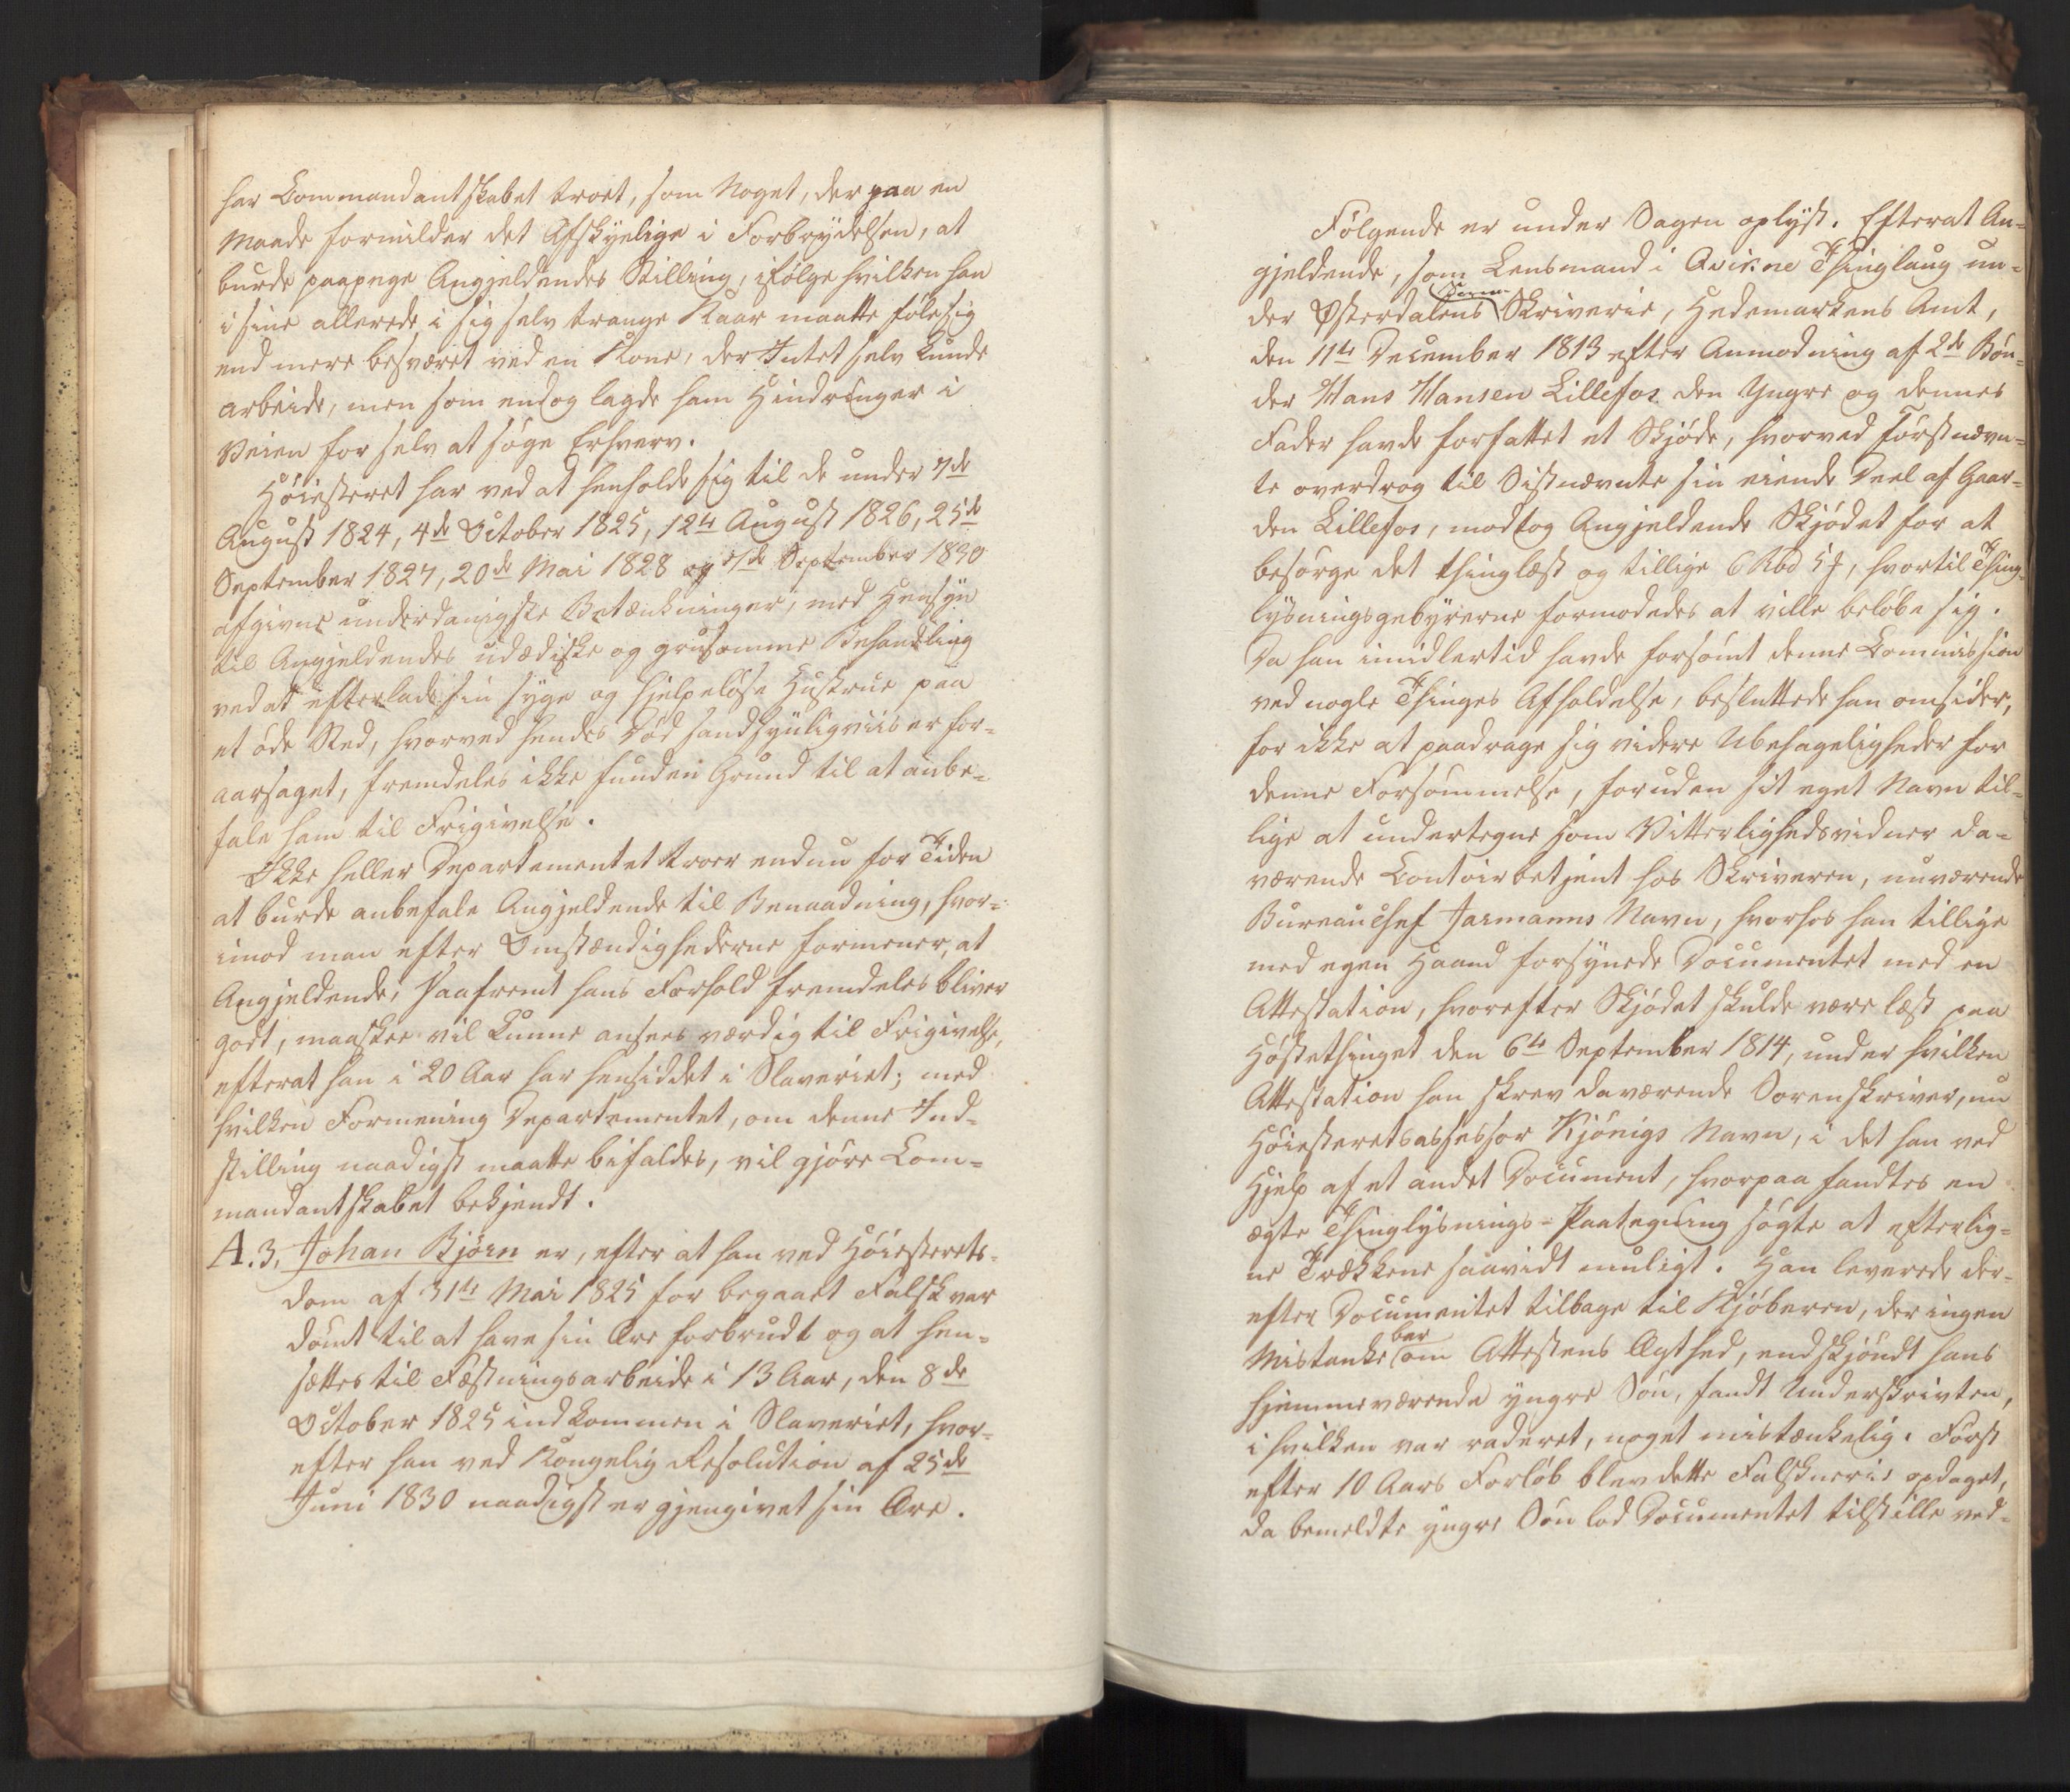 har Commandantskabet troet, som Noget, der paa en
Maade formilder det Afskyelige i Forbrydelsen, at
burde paapege Angjeldendes Stilling, ifølge hvilken han
i sine allerede i sig selv trange Kaar maatte føle sig
end mere besværet ved en Kone, der Intet selv kunde
arbeide, men som endog lagde ham Hindringer i
Veien for selv at søge Erhverv.
Høiesteret har ved at henholde sig til de under 7de
August 1824, 4de October 1825, 12te August 1826, 25de
September 1827, 20de Mai 1828 og 7de September 1830
afgivne underdanigste Betænkninger, med Hensyn
til Angjeldendes udædiske og grusomme Behandling
ved at efterlade sin syge og hjelpeløse Hustrue paa
et øde Sted, hvorved hendes Død sandsynligviis er for-
aarsaget, fremdeles ikke funden Grund til at anbe-
fale ham til Frigivelse.
Ikke heller Departementet troer endnu for Tiden
at burde anbefale Angjeldende til Benaadning, hvor-
imod man efter Omstændighederne formener, at
Angjeldende, saafremt hans Forhold fremdeles bliver
godt, maaskee vil kunne ansees værdig til Frigivelse,
efterat han i 20 Aar har hensiddet i Slaveriet; med
hvilken Formening Departementet, om denne Ind-
stilling naadigst maatte bifaldes, vil gjøre Com-
mandantskabet bekjendt.
A.3. Johan Bjørn er, efter at han ved Høiesterets-
dom af 31te Mai 1825 for begaaet Falsk var
dømt til at have sin Ære forbrudt og at hen-
sættes til Fæstningsarbeide i 13 Aar, den 8de
October 1825 indkommen i Slaveriet, hvor-
efter han ved Kongelig Resolution af 25de
Juni 1830 naadigst er gjengivet sin Ære.
Følgende er under Sagen oplyst. Efterat An-
gjeldende, som Lensmand i Qvikne Thinglaug un-
der Østerdalens Soren Skriverie, Hedemarkens Amt,
den 11te December 1813 efter Anmodning af 2de Bøn-
der Hans Hansen Lillefos den Yngre og dennes
Fader havde forfattet et Skjøde, hvorved Førstnævn-
te overdrog til Sistnævnte sin eiende Deel af Gaar-
den Lillefos, modtog Angjeldende Skjødet for at
besørge det thinglæst og tillige 6 Rbd 5 ₰, hvortil Thing-
lysningsgebyrerne formodedes at ville beløbe sig.
Da han imidlertid havde forsømt denne Commission
ved nogle Thinges Afholdelse, besluttede han omsider,
for ikke at paadrage sig videre Ubehageligheder for
denne Forsømmelse, foruden sit eget Navn til-
lige at undertegne som Vitterlighedsvidner da-
værende Contoirbetjent hos Skriveren, nuværende
Bureauchef Jarmanns Navn, hvorhos han tillige
med egen Haand forsynede Documentet med en
Attestation, hvorefter Skjødet skulde være læst paa
Høstethinget den 6te September 1814, under hvilken
Attestation han skrev daværende Sorenskriver, nu
Høiesteretsassessor Kjønigs Navn, i det han ved
Hjelp af et andet Document, hvorpaa fandtes en
ægte Thinglysnings-Paategning søgte at efterlig-
ne Trækkene saavidt muligt. Han leverede der-
efter Documentet tilbage til Kjøberen, der ingen
Mistanke bar om Attestens Ægthed, endskjøndt hans
hjemmeværende yngre Søn, fandt Underskrivten,
i hvilken var raderet, noget mistænkelig. Først
efter 10 Aars Forløb blev dette Falskneri opdaget,
da bemeldte yngre Søn lod Documentet tilstille ved-